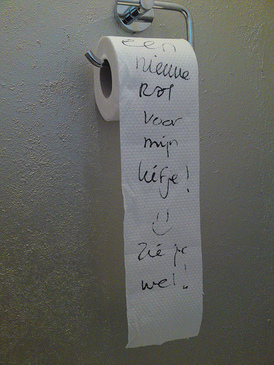 een
nieuwe
Rol
voor
mijn
liefje!
Zie je
wel!